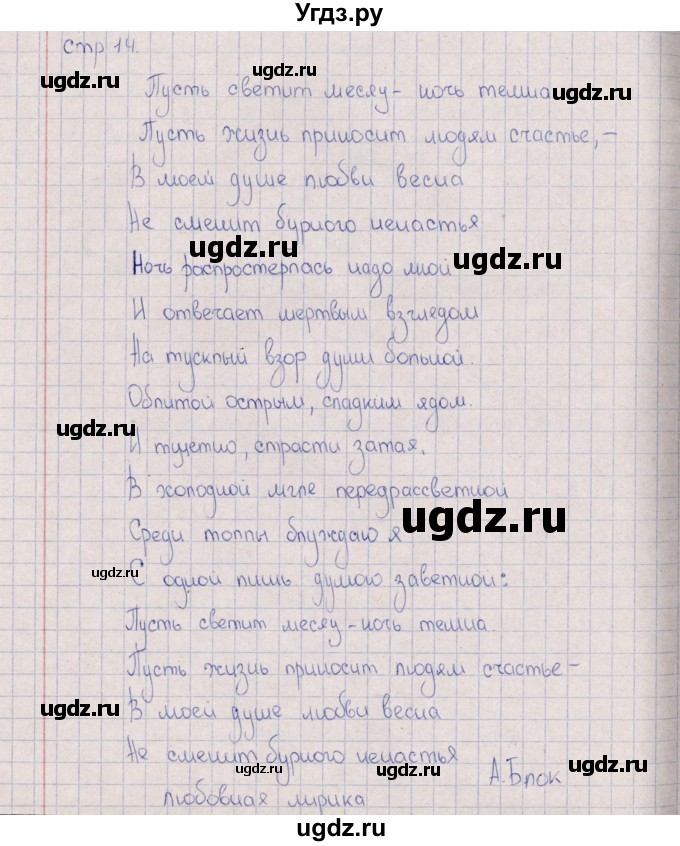 Угдз.ру
Стр 14.
Пусть светит месяц - ночь темна
Пусть жизнь приносит людям счастье, -
В моей душе любви весна
Не сменит бурного ненастья
Ночь распростерлась надо мной
И отвечает мертвым взглядом
На тусклый взор души больной.
Облитой острым, сладким ядом.
И тщетно, страсти затая.
В холодной мгле передрассветной
Среди толпы блуждаю я
С одной лишь думою заветной:
Пусть светит месяц - ночь темна.
Пусть жизнь приносит людям счастье -
В моей душе любви весна
Не сменит бурного ненастья
А.Блок
любовная лирика
ugdz.ru
ugdz.ru
ugdz.ru
ugdz.ru
ugdz.ru
ugdz.ru
ugdz.ru
ugdz.ru
ugdz.ru
ugdz.ru
ugdz.ru
ugdz.ru
ugdz.ru